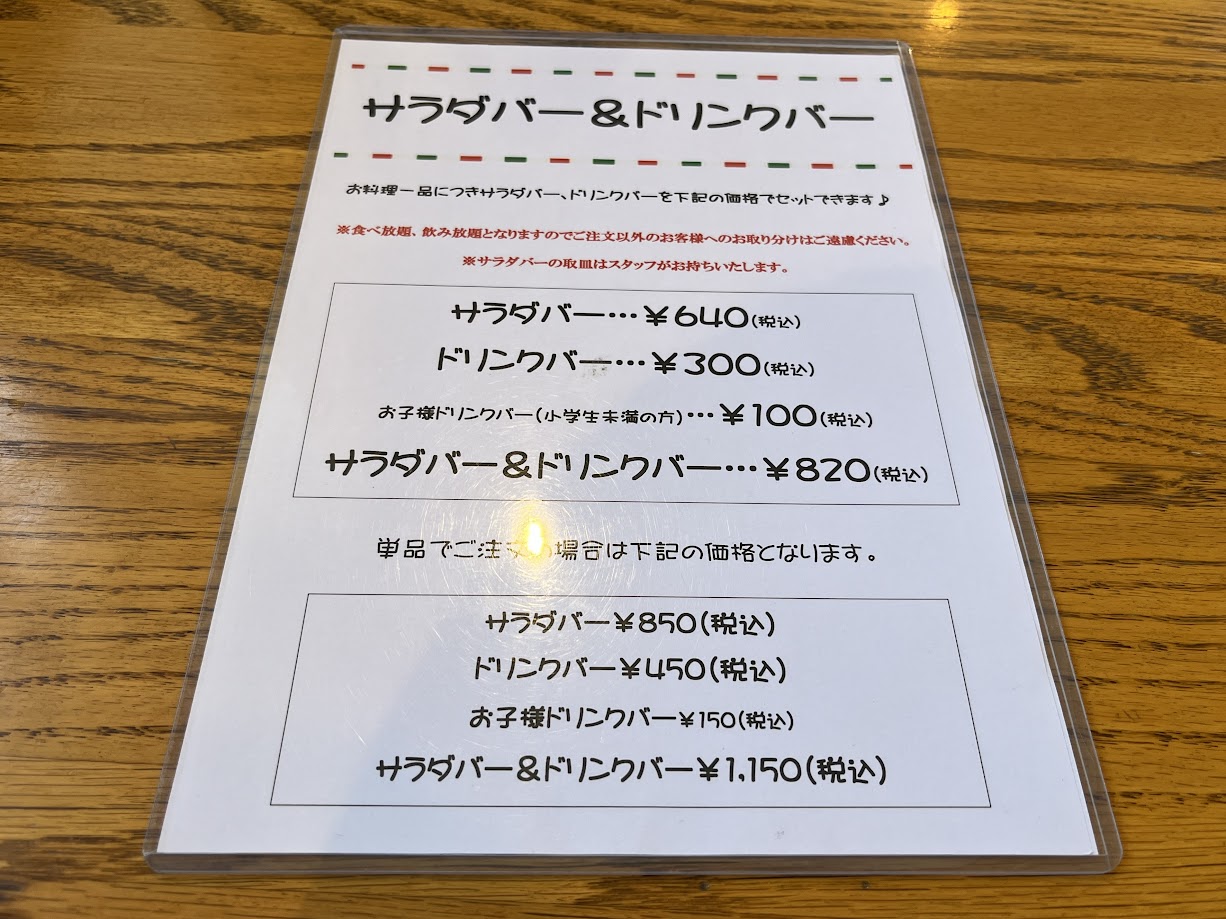 サラダバー＆ドリンクバー
お料理一品につきサラダバー、ドリンクバーを下記の価格でセットできます♪
※食べ放題、飲み放題となりますのでご注文以外のお客様へのお取り分けはご遠慮ください。
※サラダバーの取皿はスタッフがお持ちいたします。
サラダバー…￥640(税込)
ドリンクバー…￥300(税込)
お子様ドリンクバー(小学生未満の方)…￥100(税込)
サラダバー＆ドリンクバー…￥820(税込)
単品でご注文の場合は下記の価格となります。
サラダバー￥850(税込)
ドリンクバー￥450(税込)
お子様ドリンクバー￥150(税込)
サラダバー＆ドリンクバー￥1,150(税込)